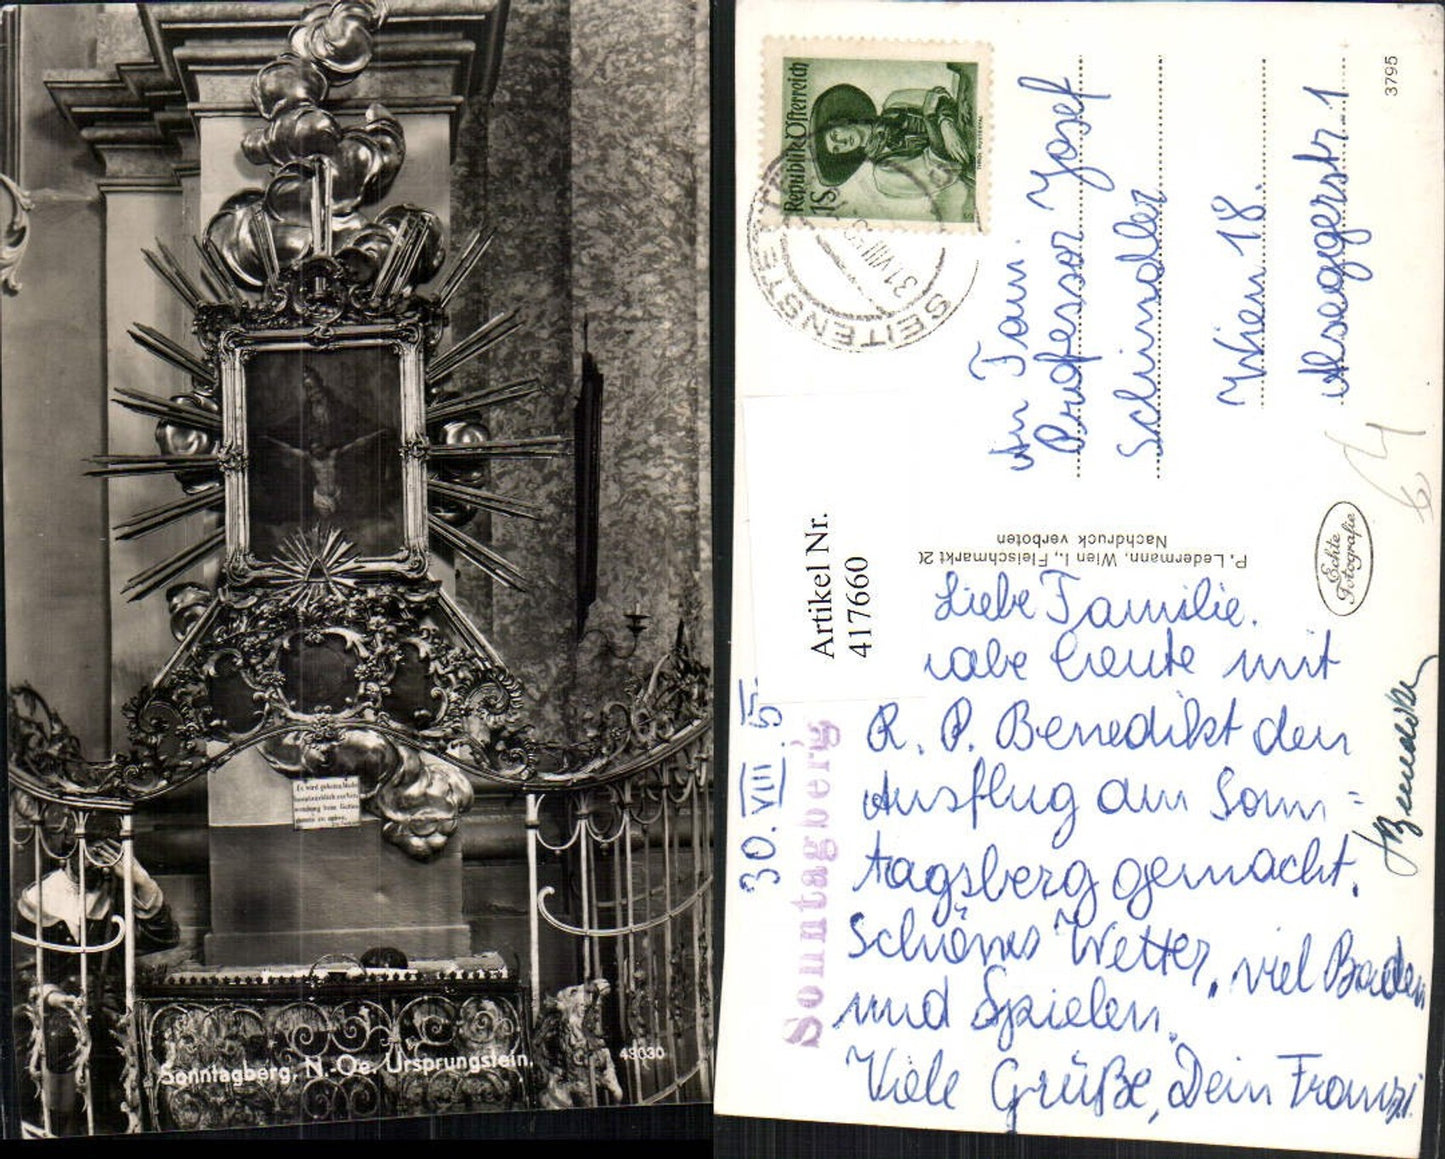 Es wird gebeten, Weihe
Sonntagberg, N.-Oe. Ursprungstein.
48030
Republik Österreich
1S
TIROL PUSTERTAL
31 VIII
SEITENSTE
An Fam.
Professor Josef
Schindler
Wien 18.
Alseggerstr. 1
3795
Artikel Nr.
417660
P. Ledermann, Wien I., Fleischmarkt 20
Nachdruck verboten
Echte
Fotografie
Sonntagberg
30. VIII. 5
Liebe Familie.
habe heute mit
R. P. Benedikt den
Ausflug am Sonn=
tagsberg gemacht.
Schönes Wetter, viel Baden
und Spielen.
Viele Grüße, Dein Franzi.
P. Benedikt